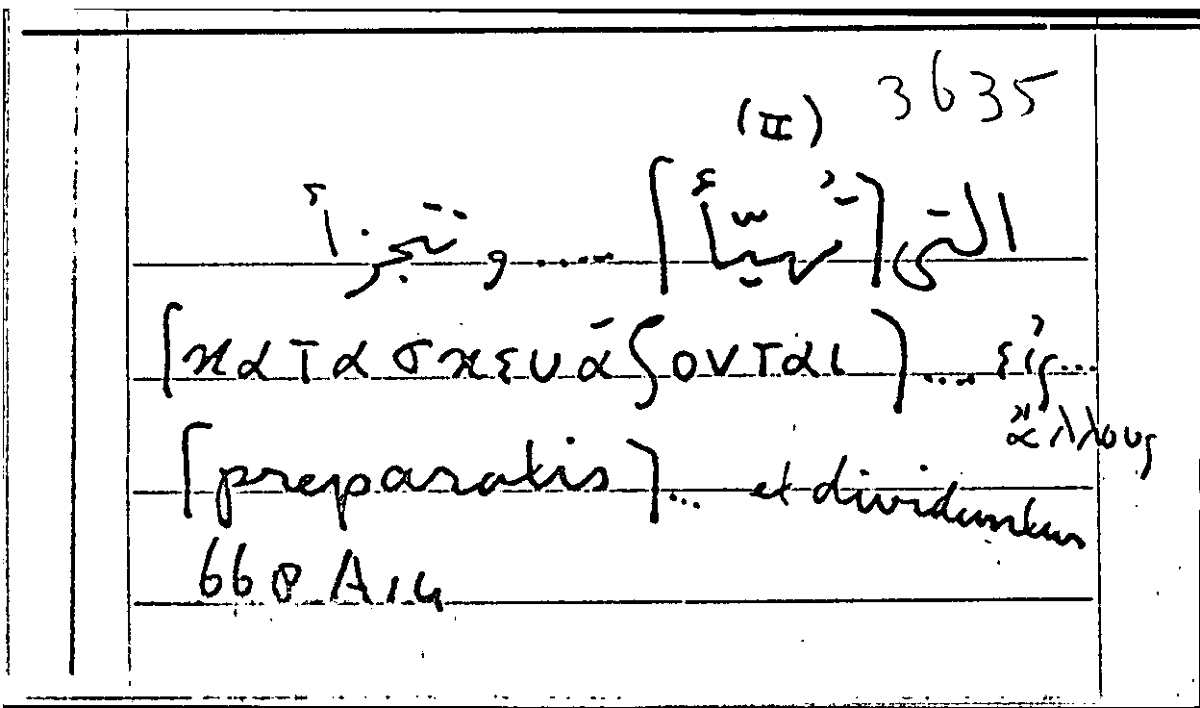 3635
(II)
التى [تُهيّأ] ..... و تتجزأ
[κατασκευάζονται] .... εἰς ...
ἄλλους
[preparatis] ... et dividuntur
66 θ A 14